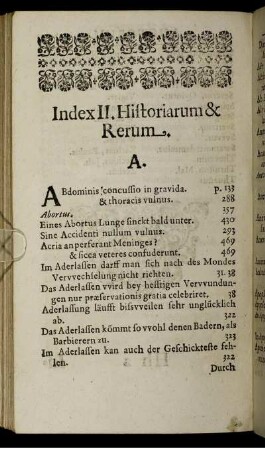 Index II. Historiarum &
Rerum.
A.
ABdominis concussio in gravida. p. 133
& thoracis vulnus. 288
Abortus. 357
Eines Abortus Lunge sinckt bald unter. 430
Sine Accidenti nullum vulnus. 293
Acria an perferant Meninges? 469
& sicca veteres confuderunt. 469
Im Aderlassen darff man sich nach des Mondes
Vervvechselung nicht richten. 31. 38
Das Aderlassen vvird bey hefftigen Vervvundun-
gen nur præservationis gratia celebriret. 38
Aderlassung läufft bisvveilen sehr unglücklich
ab. 322
Das Aderlassen kömmt so vvohl denen Badern, als
Barbierern zu. 323
Im Aderlassen kan auch der Geschickteste feh-
len. 322
Durch